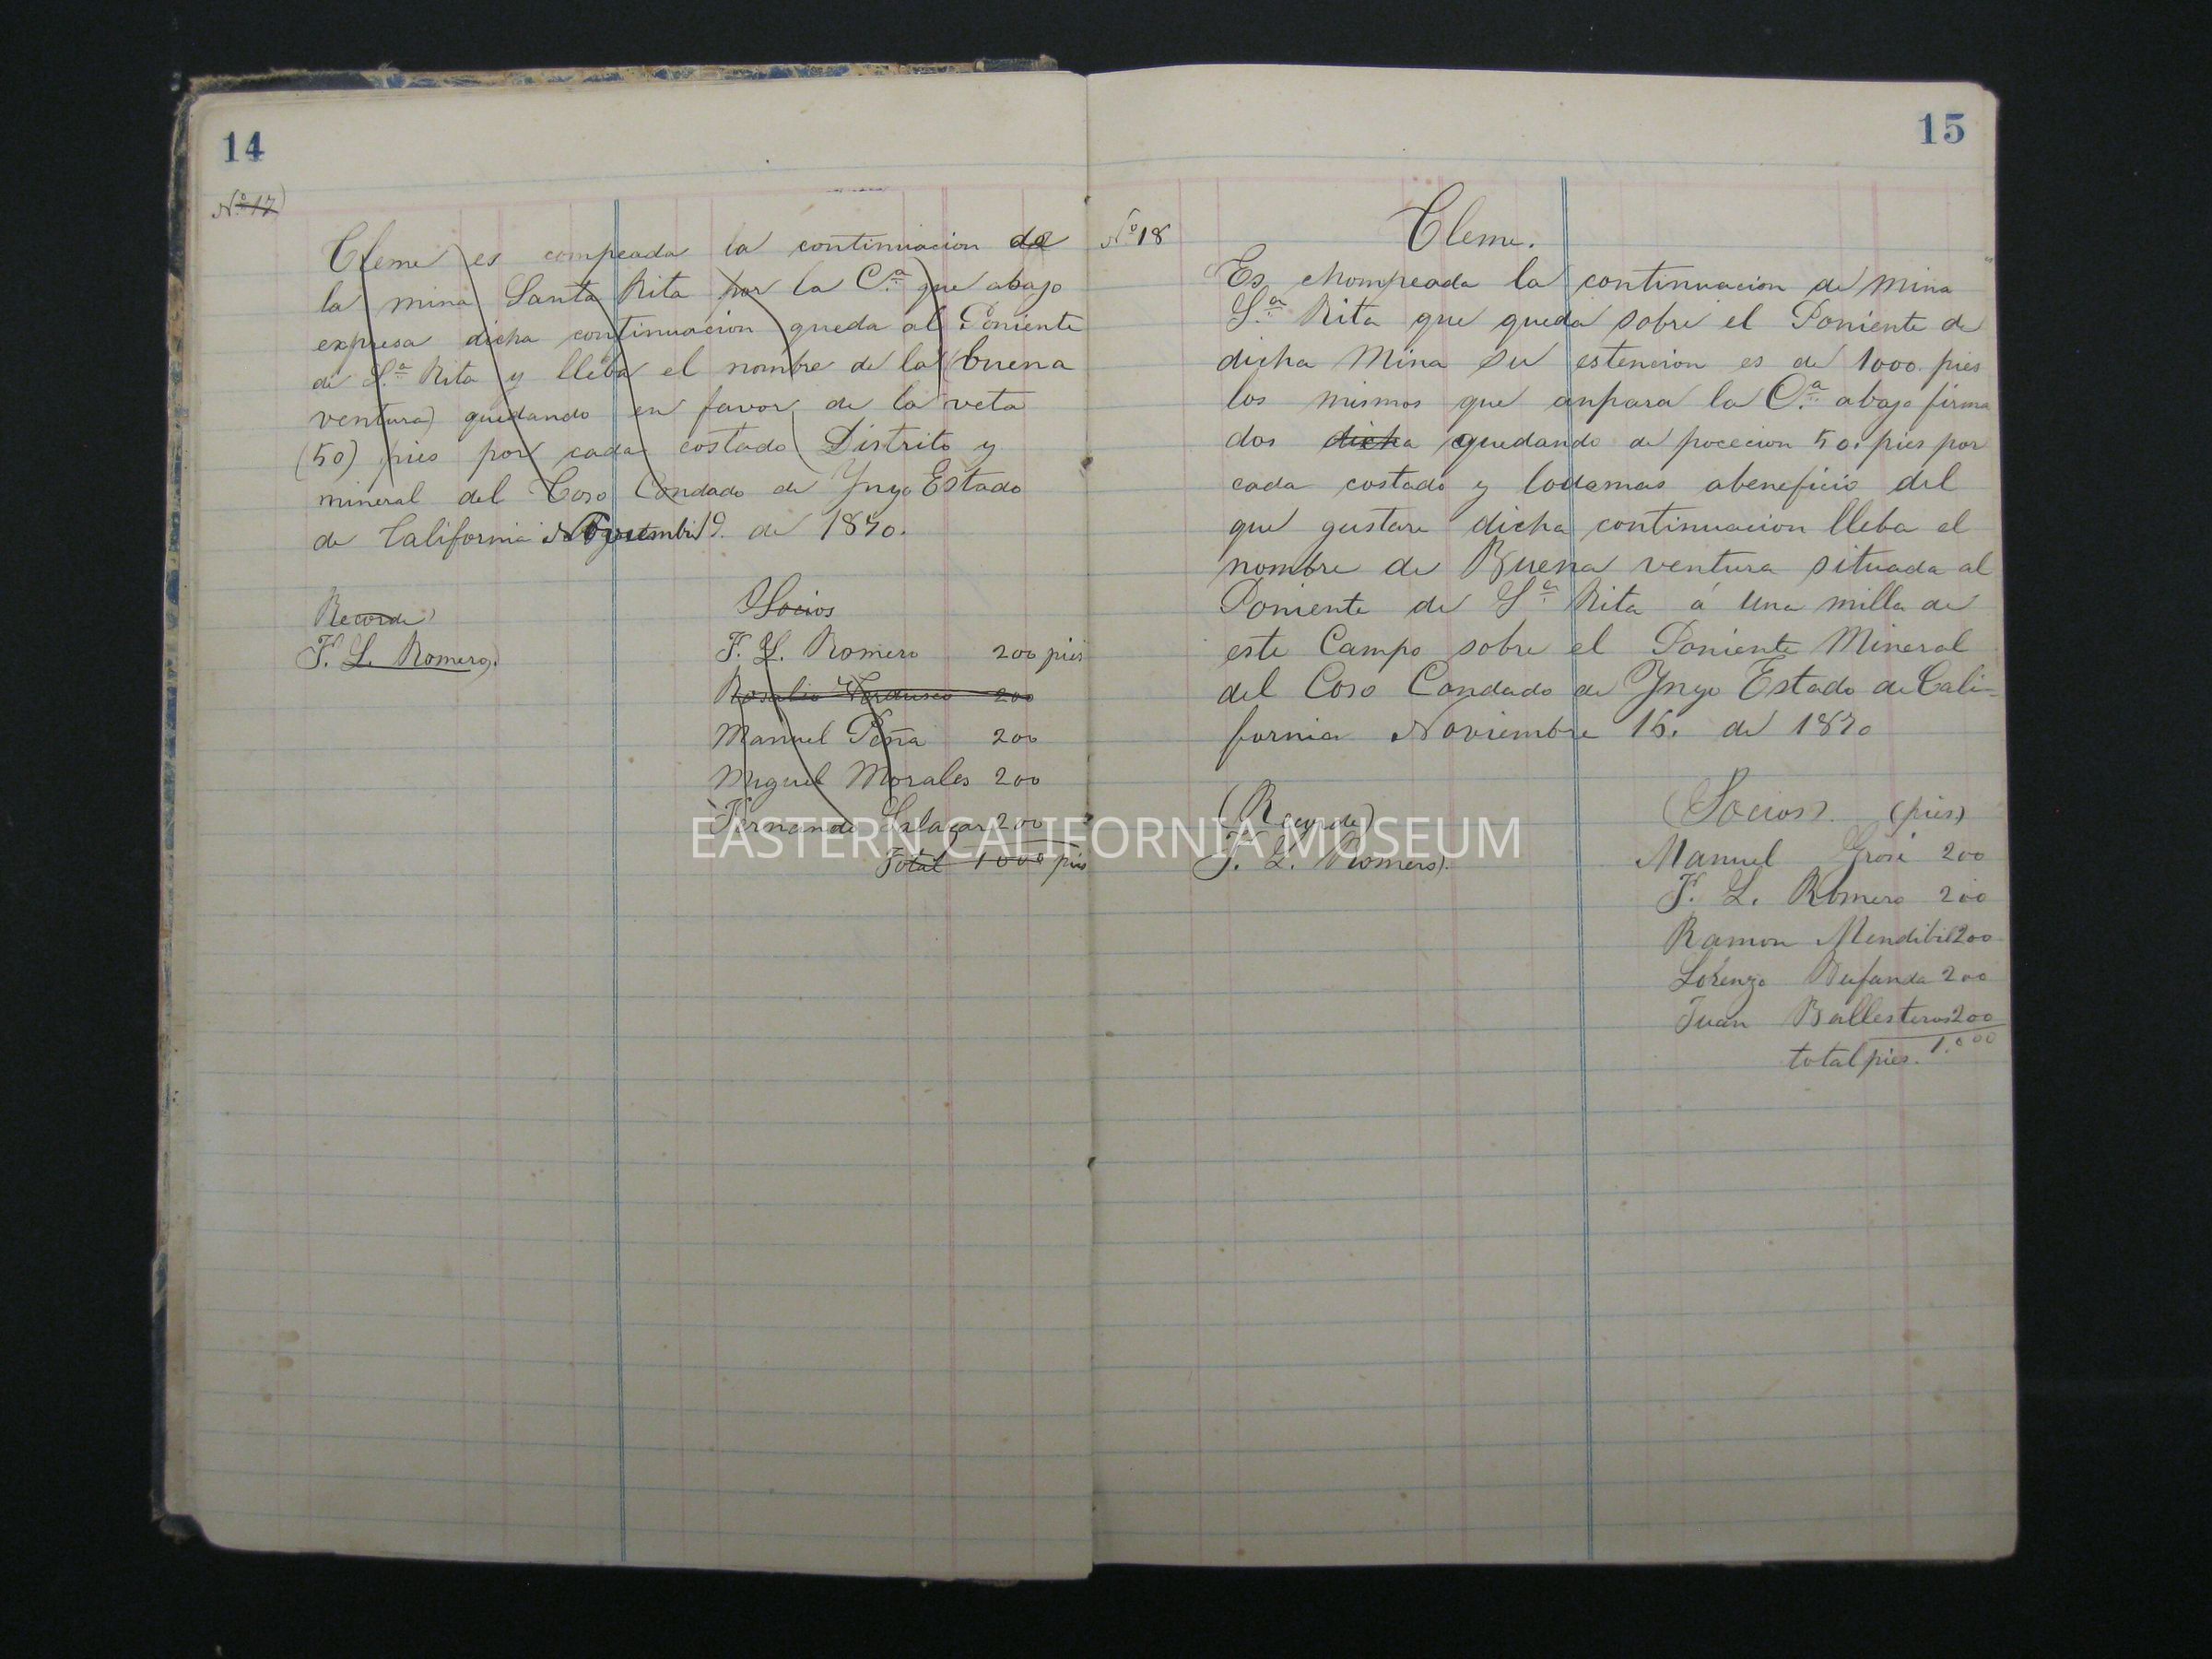 14
No. 17
Cleme) es compeada la continuacion de
la mina Santa Rita por la C.ª que abajo
expresa dicha continuacion queda al Poniente
de S.ª Rita y lleba el nombre de la (buena
ventura) quedando en favor de la veta
(50) pies por cada costado Distrito y
mineral del Coso Condado de Ynyo Estado
de California Noviembre 19. de 1870.
Recorde)
F. L. Romero).
Socios
F. L. Romero 200 pies
Rosalio Verdusco 200
Manuel Peña 200
Miguel Morales 200
Fernando Salazar 200
Total 1000 pies
15
No. 18
Cleme.
Es chompeada la continuacion de Mina
S.ª Rita que queda sobre el Poniente de
dicha Mina su estencion es de 1000. pies
los mismos que anpara la C.ª abajo firma
dos dicha quedando de pocecion 50. pies por
cada costado y lodamas abeneficio del
que gustare dicha continuacion lleba el
nombre de Buena ventura situada al
Poniente de S.ª Rita á Una milla de
este Campo sobre el Poniente Mineral
del Coso Condado de Ynyo Estado de Cali=
fornia Noviembre 16. de 1870
(Recorde)
F. L. Romero).
(Socios). (pies)
Manuel 200
F. L. Romero 200
Ramon Mendibil 200
Lorenzo 200
Juan Ballesteros 200
total pies. 1.000
EASTERN CALIFORNIA MUSEUM